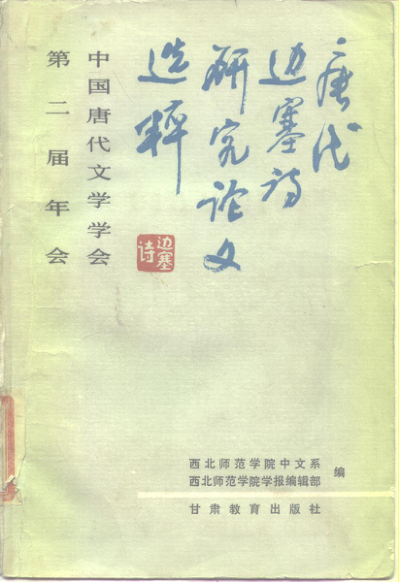 唐代
边塞诗
研究论文
选粹
中国唐代文学学会
第二届年会
边塞
诗
西北师范学院中文系
西北师范学院学报编辑部
编
甘肃教育出版社